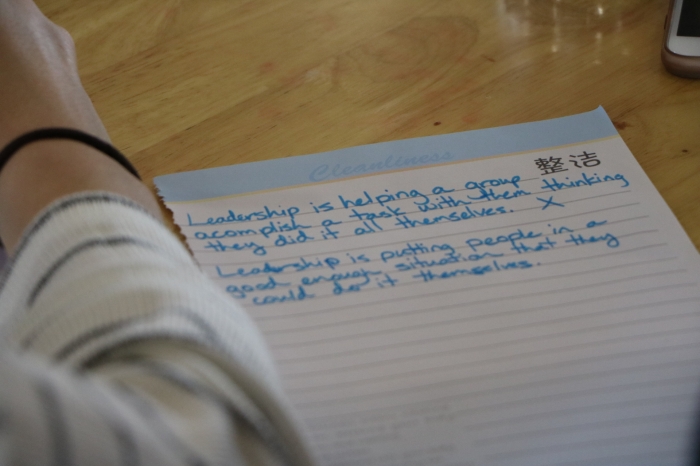 Cleanliness
整洁
Leadership is helping a group
acomplish a task with them thinking
they did it all themselves. X
Leadership is putting people in a
good enough situation that they
could do it themselves.